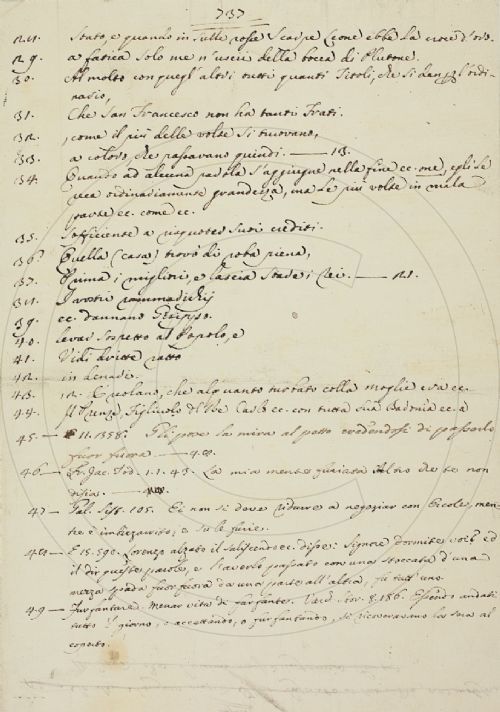 737
28. Stato, e quando in sulle rosse Scarpe (cone ebbe la croce d'oro.
29. a fatica solo me n'uscii della bocca di Plutone.
30. Al molto con quegl'altri tutti quanti Titoli, che si dan gl'ordi-
nario,
31. Che San Francesco non ha tanti Frati.
32. , come il più delle volte si truovano,
33. a coloro, che passavano quindi. — 13.
34. Quando ad alcuna parola s'aggiugne nella fine ec. one, egli si
reca ordinariamente grandezza, ma le più volte in mala
parte ec. come ec.
35. sofficiente a riquoter suoi crediti.
36. Quella (casa) trovò di roba piena,
37. Prima i migliori, e lascia stare i rei. — 21.
38. I vostri
39. ec. dannano
40. levar sospetto al Popolo, e
41. Vidi dritte ratto
42. in denari.
43. 12. che alquanto turbato colla moglie era ec.
44. Il Figliuolo del Re Carlo ec. con tutta sua Baronia ec. a
45. — F. 11. 1358. Gli pose la mira al petto credendosi di passarlo
fuor fuora. — 48.
46 — Fr. Jac. Tod. 1. 1. 43. La mia mente furiata Altro che te non
disia. —
47 — Gal. Sist. 105. Ei non si deve ridurre a negoziar con Ercole, men-
tre è imbizzarrito, e su le furie.
48 — F. 15. 590. Lorenzo alzato il saliscendo ec. disse: Signore dormite voi? ed
il dir queste parole, e l'averlo passato con una stoccata d'una
mezza spada fuor fuora da una parte all'altra, fu tutt'uno.
49 — Furfantare. Menar vita di furfante. Varch. Stor. 8. 186. Essendo andati
tutto 'l giorno, o accattando, o furfantando, si ricoveravano la sera al
coperto.